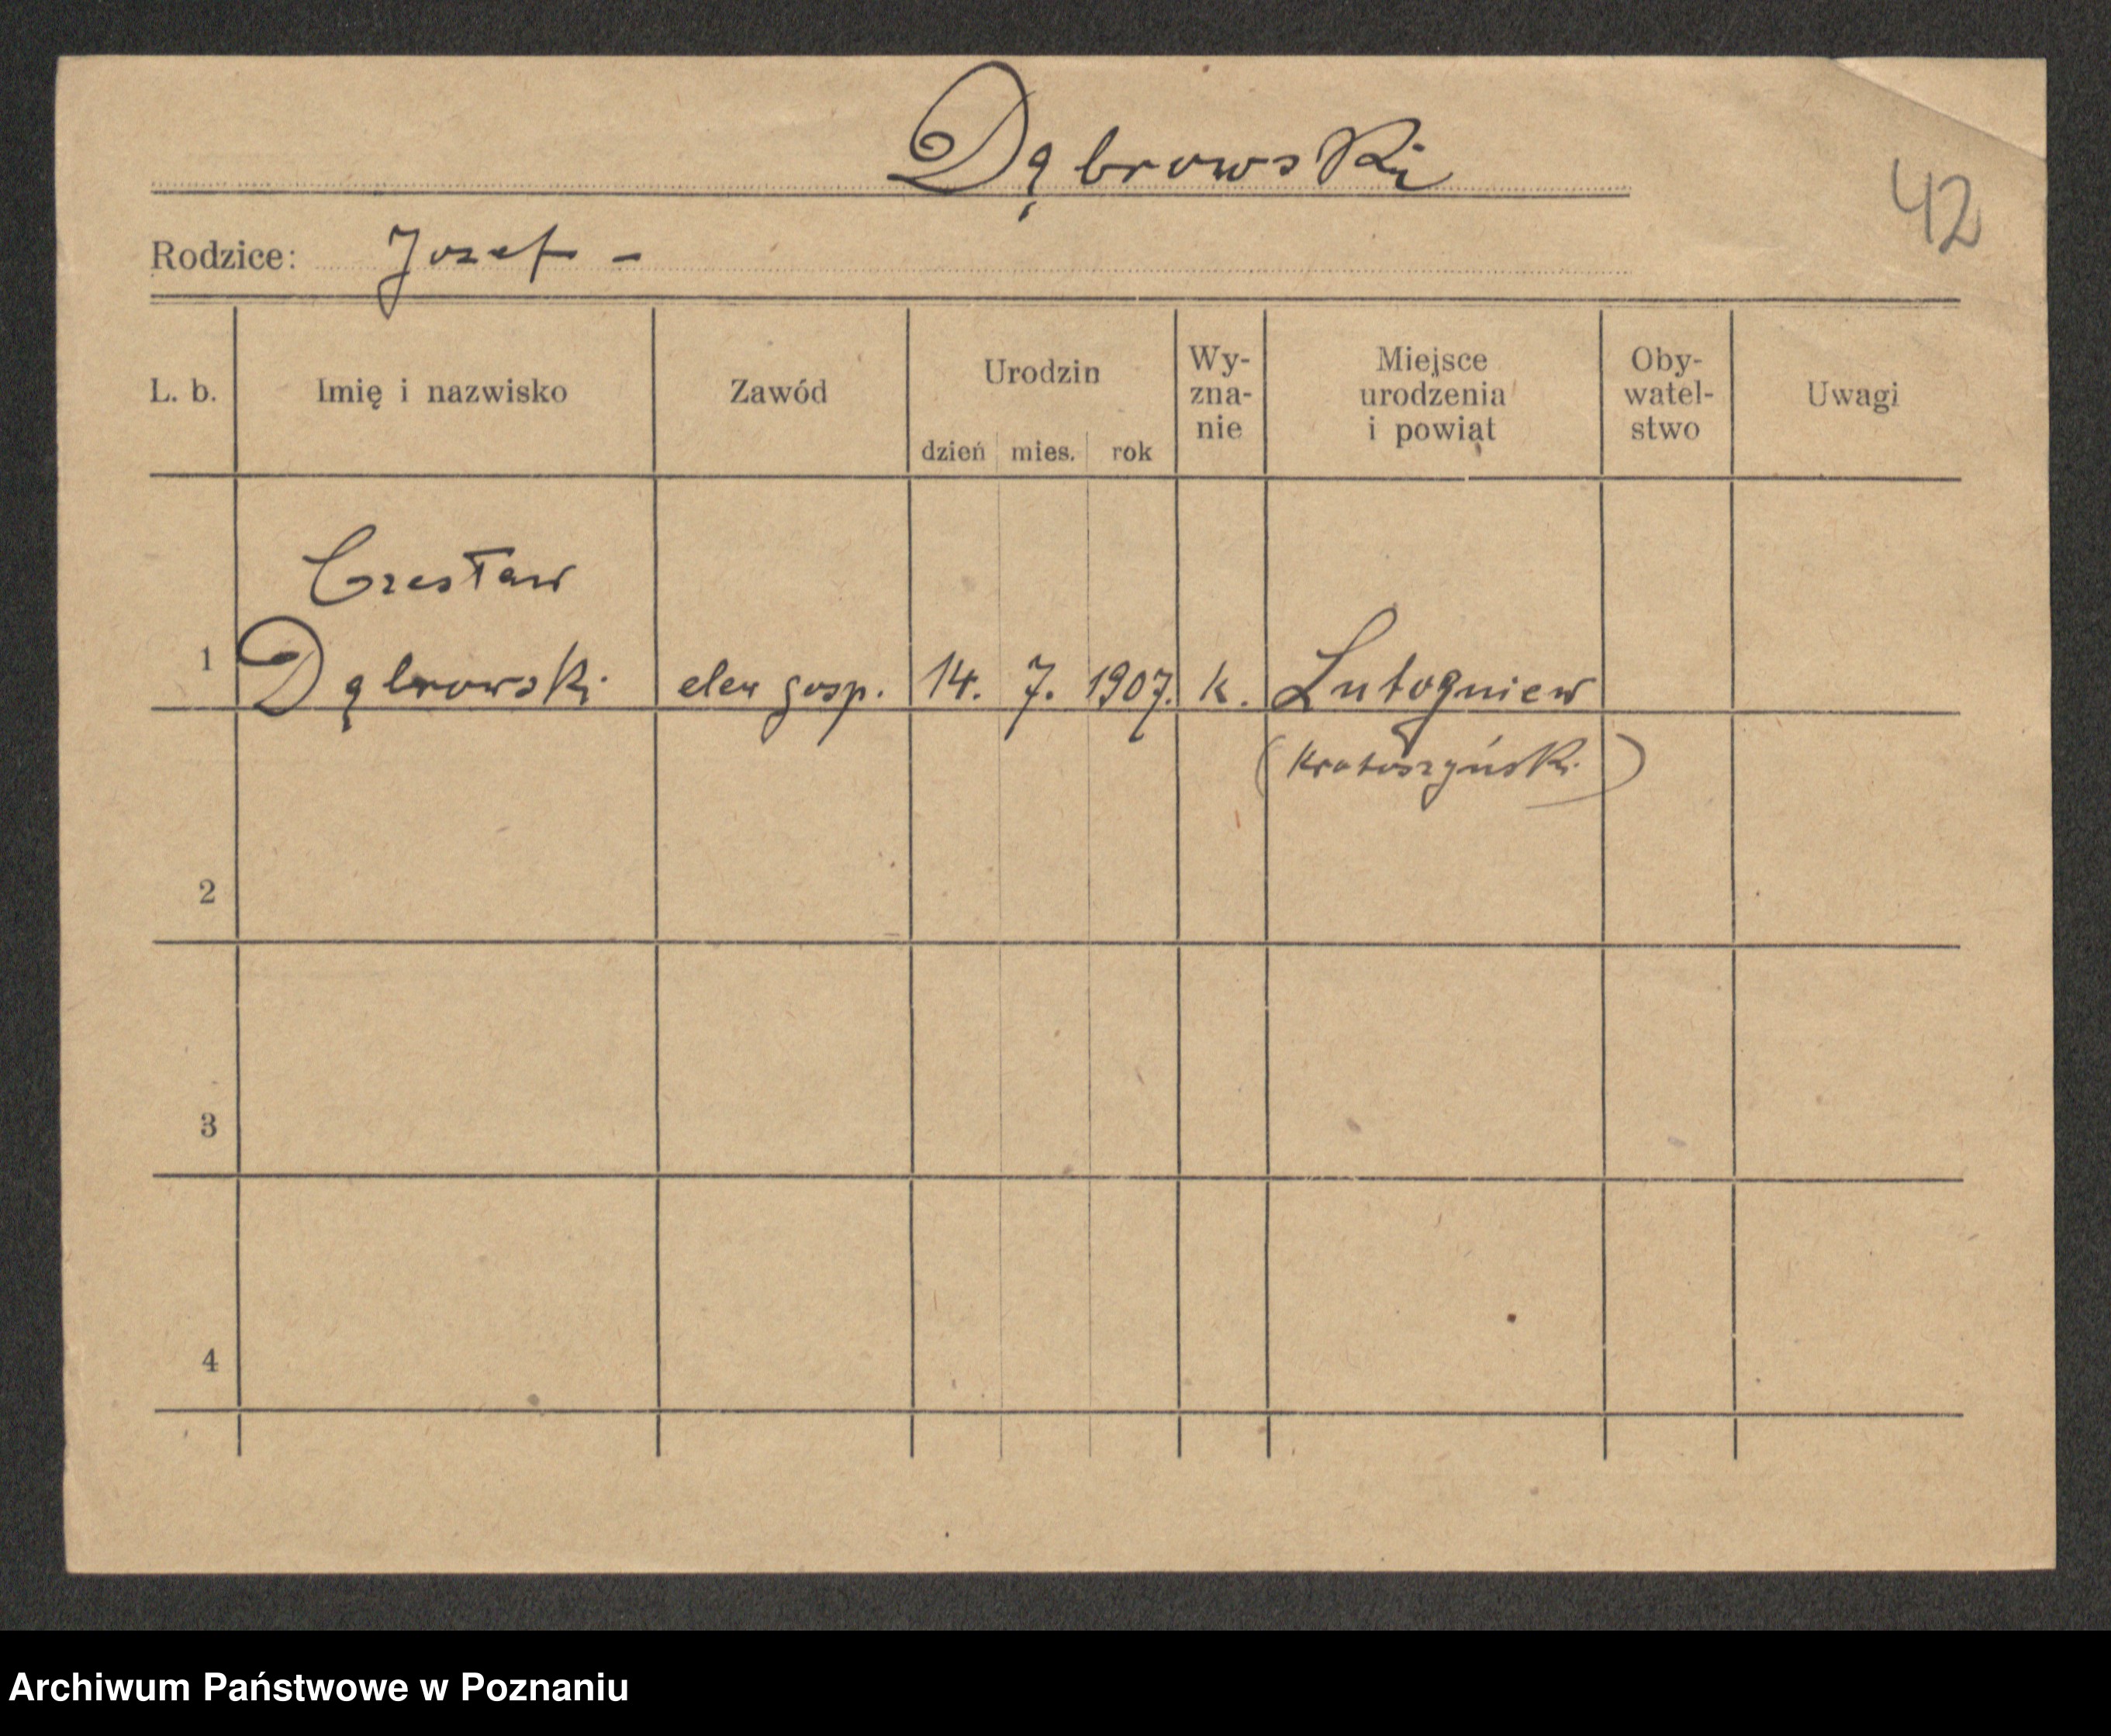 Dąbrowski
42
Rodzice: Jozef -
L. b. Imię i nazwisko Zawód Urodzin dzień mies. rok Wy-zna-nie Miejsce urodzenia i powiat Oby-watel-stwo Uwagi
Czesław
1 Dąbrowski elew gosp. 14. 7. 1907. k. Lutogniew
(Krotoszyński)
2
3
4
Archiwum Państwowe w Poznaniu